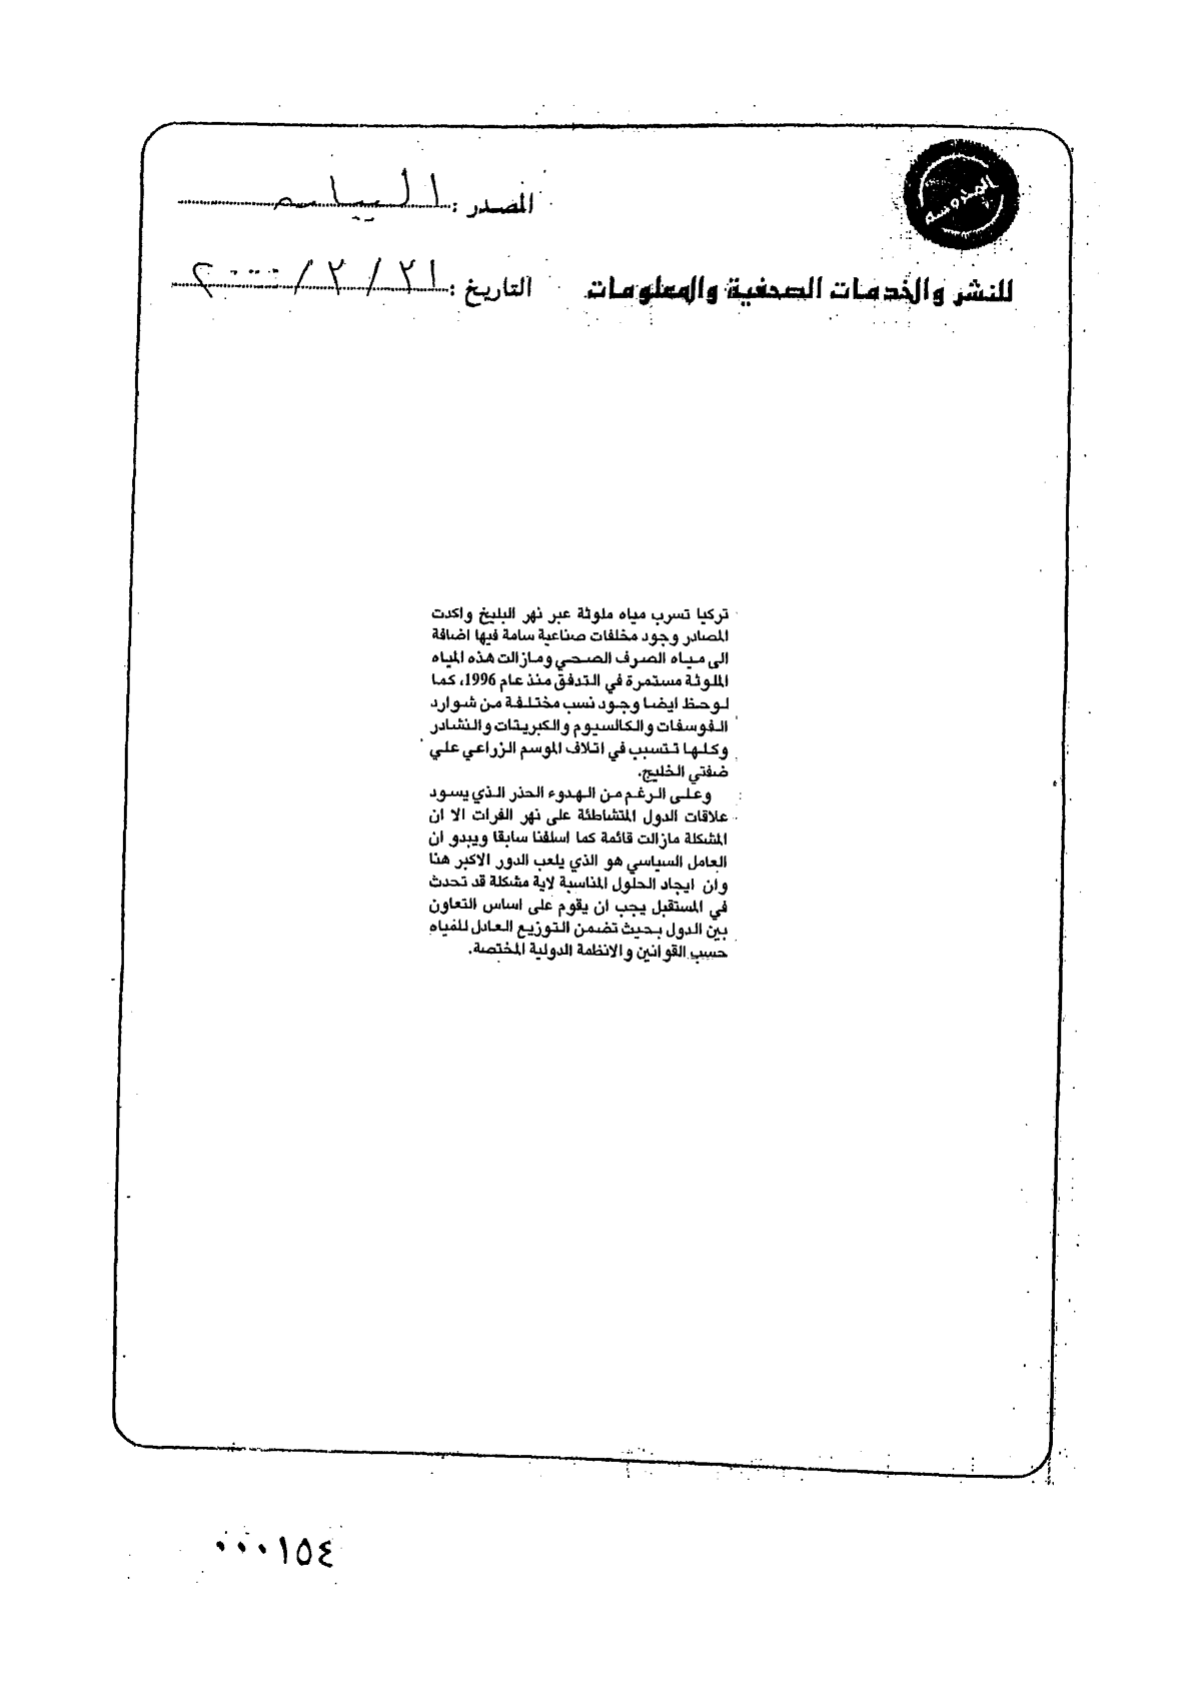 المحروسة
المصدر :
للنشر والخدمات الصحفية والمعلومات
التاريخ : ٢١ / ٢ / ٢٠٠٠
تركيا تسرب مياه ملوثة عبر نهر البليخ واكدت
المصادر وجود مخلفات صناعية سامة فيها اضافة
الى مياه الصرف الصحي ومازالت هذه المياه
الملوثة مستمرة في التدفق منذ عام 1996، كما
لوحظ ايضا وجود نسب مختلفة من شوارد
الفوسفات والكالسيوم والكبريتات والنشادر
وكلها تتسبب في اتلاف الموسم الزراعي علي
ضفتي الخليج.
وعلى الرغم من الهدوء الحذر الذي يسود
علاقات الدول المتشاطئة على نهر الفرات الا ان
المشكلة مازالت قائمة كما اسلفنا سابقا ويبدو ان
العامل السياسي هو الذي يلعب الدور الاكبر هنا
وان ايجاد الحلول المناسبة لاية مشكلة قد تحدث
في المستقبل يجب ان يقوم على اساس التعاون
بين الدول بحيث تضمن التوزيع العادل للمياه
حسب القوانين والانظمة الدولية المختصة.
٠٠٠١٥٤